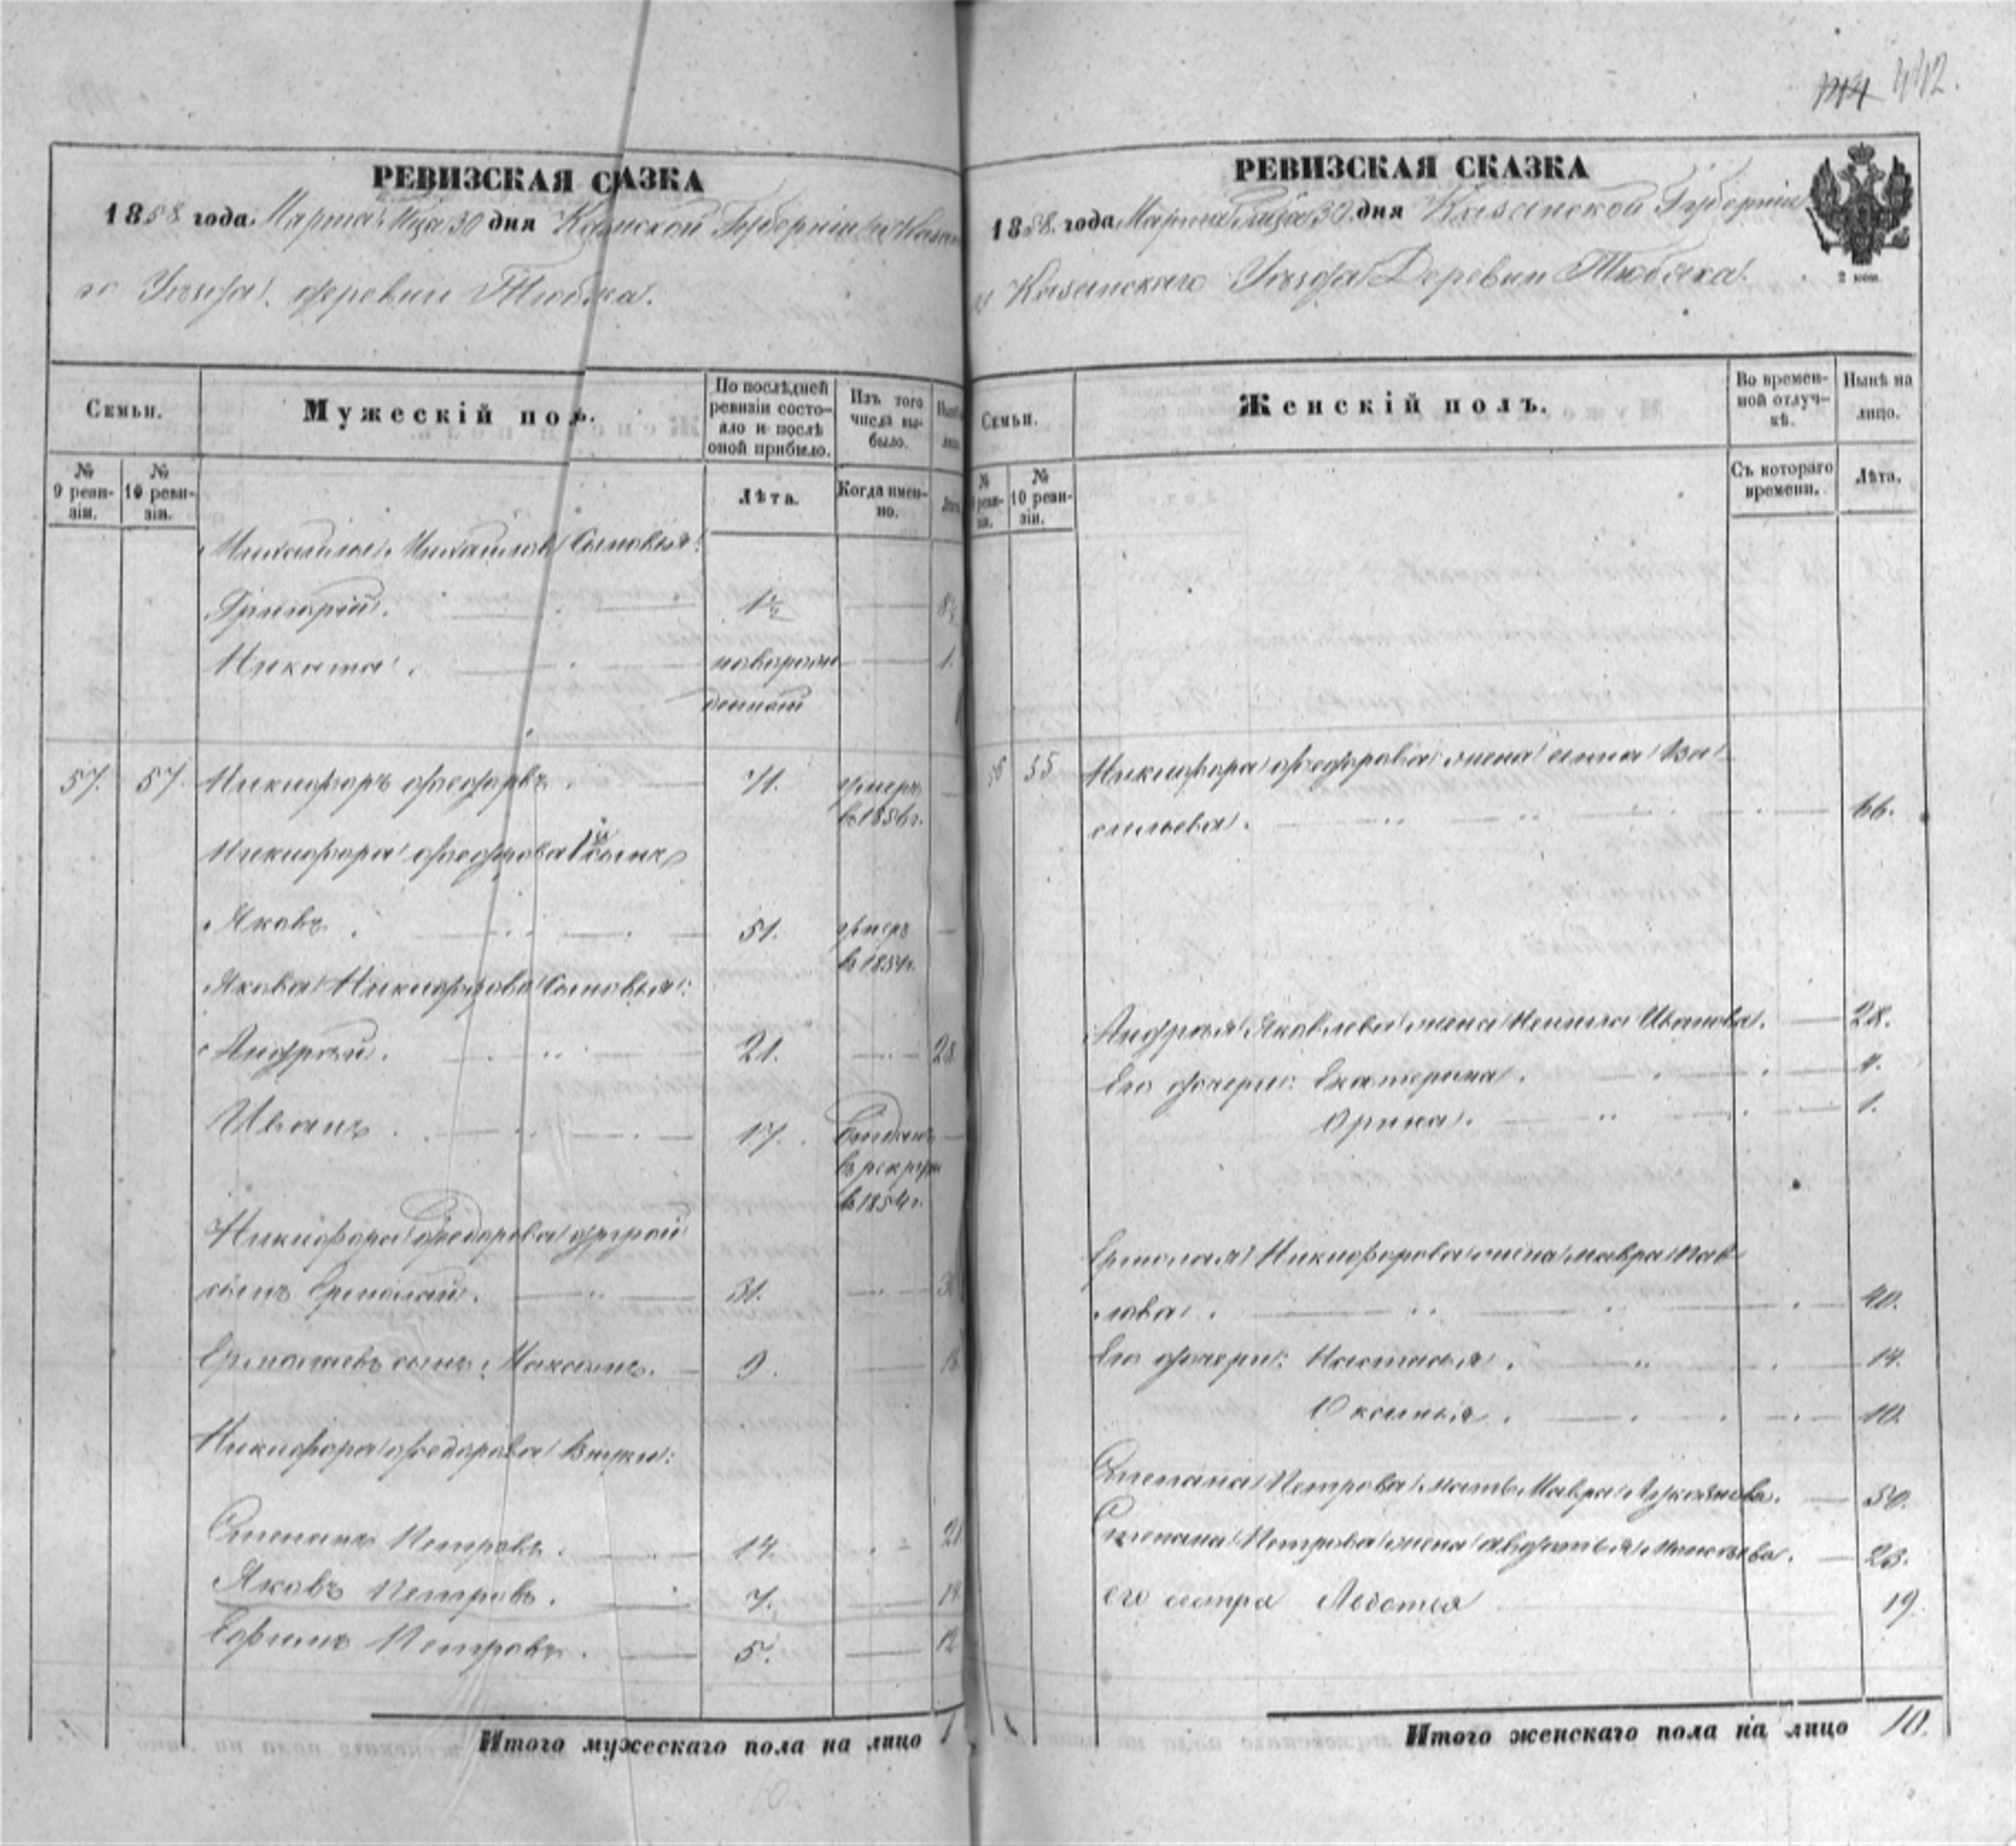 442.
РЕВИЗСКАЯ СКАЗКА
1858 года Марта Мца 30 дня Казанской Губернии
го Уѣзда деревни Тюбяка.
Семьи.
Мужескій полъ.
По послѣдней ревизіи состояло и послѣ оной прибыло.
Изъ того числа выбыло.
№ 9 ревизіи.
№ 10 ревизіи.
Лѣта.
Когда именно.
Михайлы Михайлова Сыновья:
Григорій. 1½ 8½
Никита. новорожденный 1.
57. 57. Никифоръ Федоровъ. 71. умеръ в 1856г.
Никифора Федорова 1й сынъ
Яковъ. 51. умеръ в 1854г.
Якова Никифорова Сыновья:
Андрей. 21. 28
Иванъ. 17. Отданъ в рекруты в 1854г.
Никифора Федорова другой
сынъ Ермолай. 31.
Ермолаевъ сынъ Максимъ. 9. 16
Никифора Федорова Внуки:
Степанъ Петровъ. 14. 21
Яковъ Петровъ. 7. 14
Ефимъ Петровъ. 5. 12
Итого мужескаго пола на лицо
РЕВИЗСКАЯ СКАЗКА
1858 года Марта Мца 30 дня Казанской Губерніи
Казанскаго Уѣзда Деревни Тюбяка.
2 коп.
Семьи.
Женскій полъ.
Во временной отлучкѣ.
Нынѣ на лицо.
№ 10 ревизіи.
Съ котораго времени.
Лѣта.
55 Никифора Федорова жена Анна Ва
сильева. 66.
Андрея Яковлева жена Ненила Иванова. 28.
Его дочери: Екатерина. 4.
Орина. 1.
Ермолая Никифорова жена Мавра Пав
лова. 40.
Его дочери: Настасья. 14.
Оксинья. 10.
Степана Петрова мать Мавра Лукоянова. 50.
Степана Петрова жена Авдотья 23.
его сестра Авдотья 19
Итого женскаго пола на лицо 10.